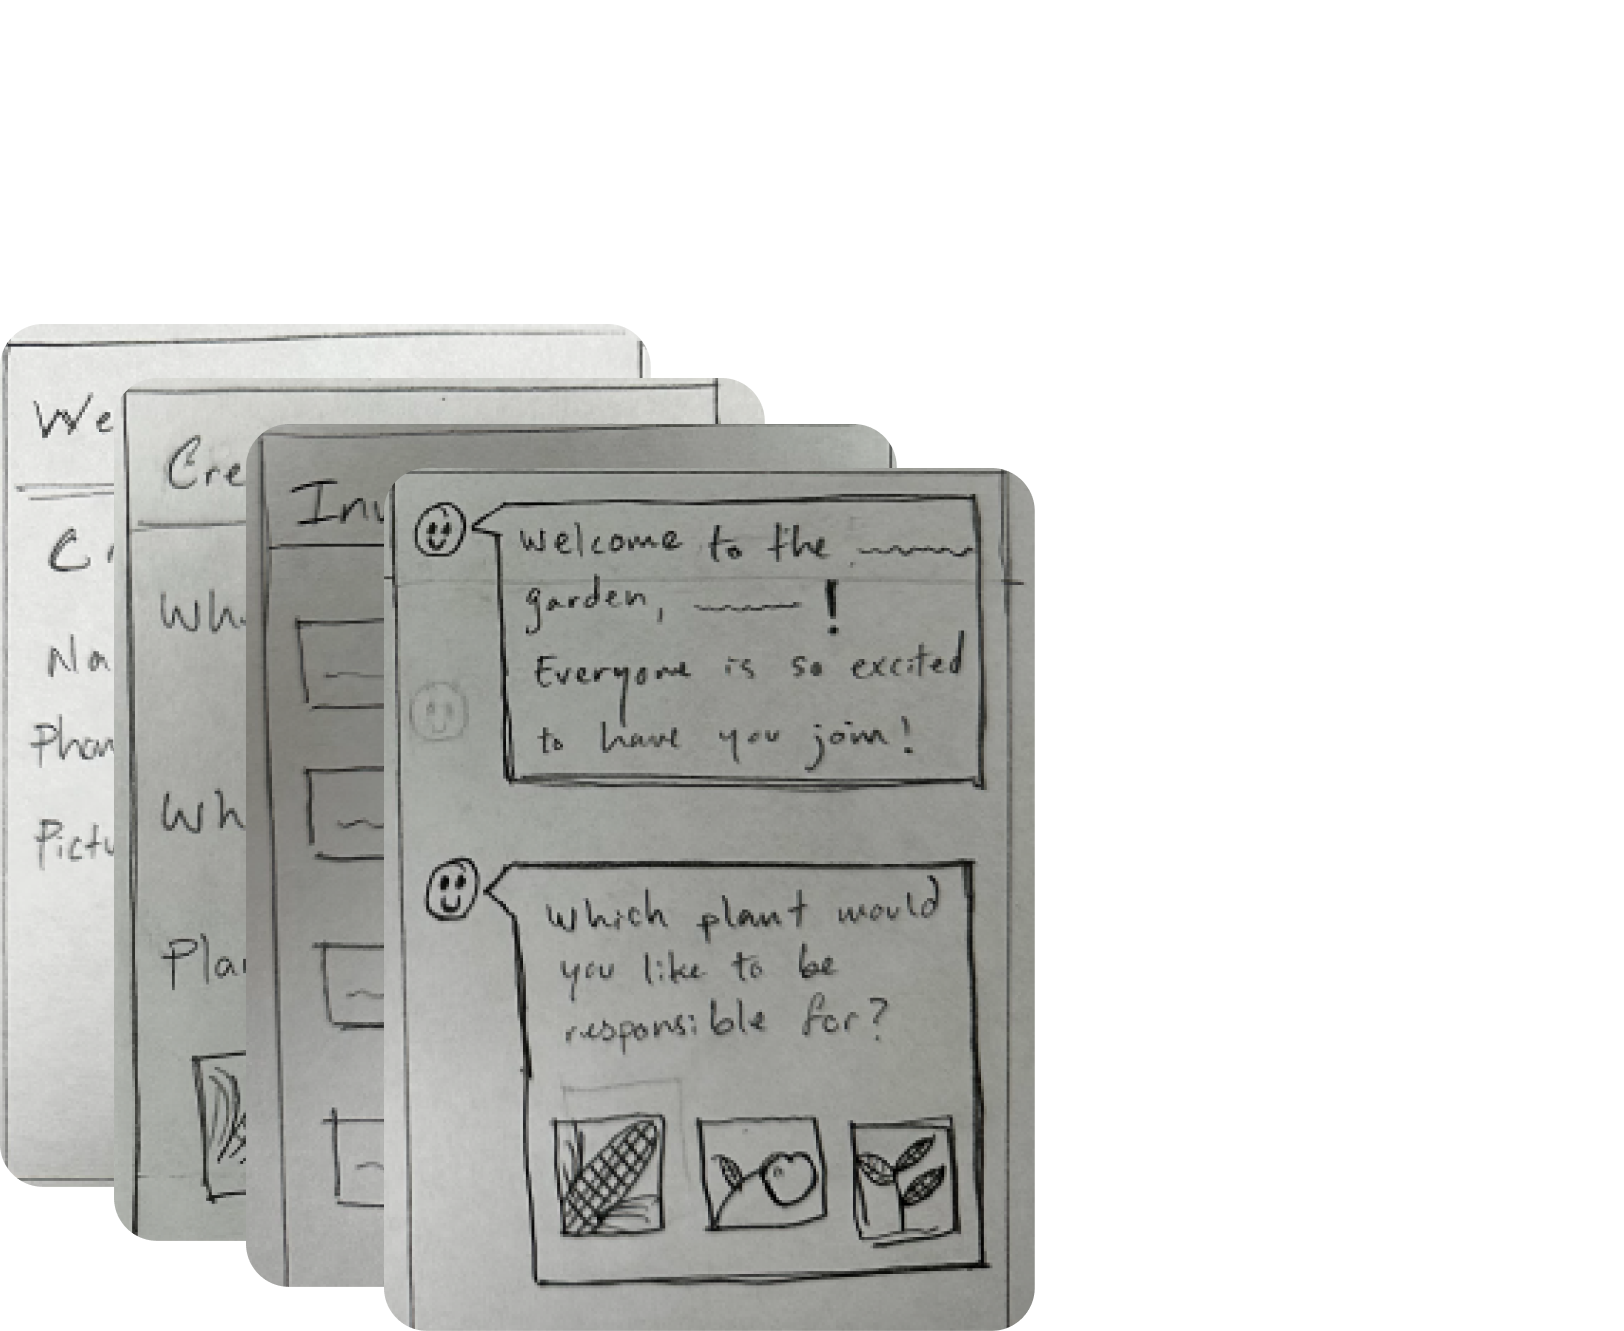 We
Cr
Na
Phon
Pictu
Cre
Wh
Wh
Plan
Inv
Welcome to the
garden, !
Everyone is so excited
to have you join!
Which plant would
you like to be
responsible for?